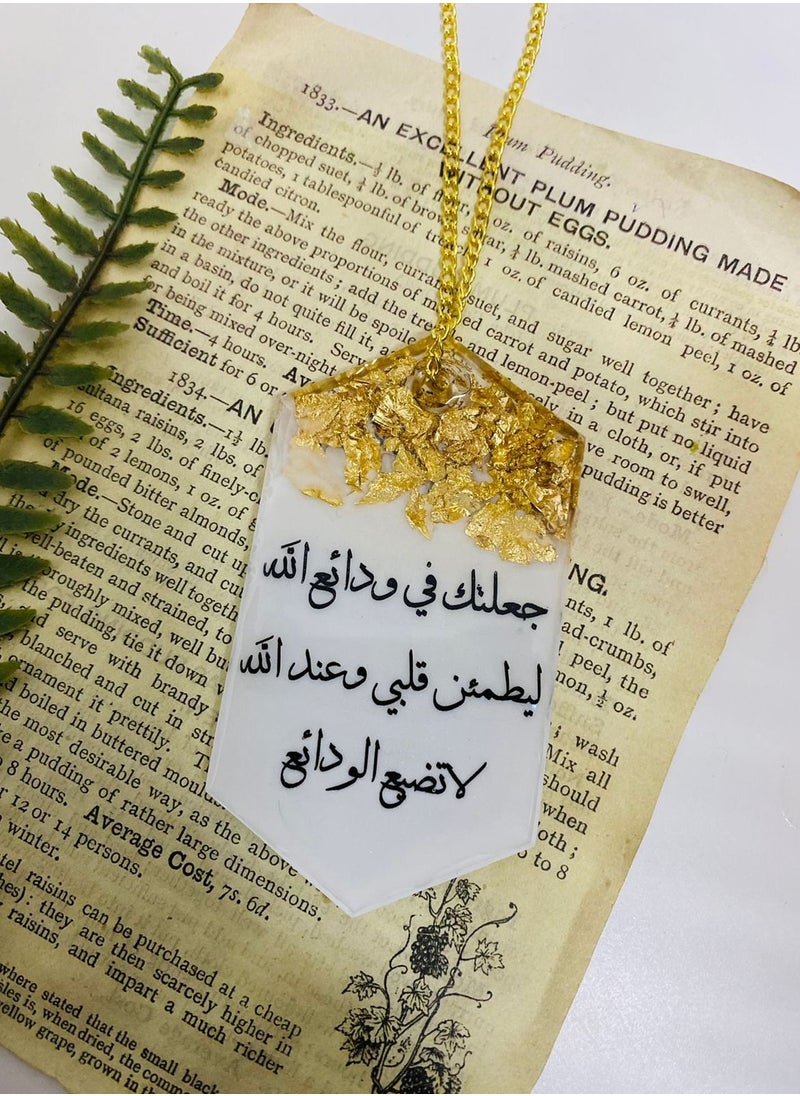 Plum Pudding.
1833.—AN EXCELLENT PLUM PUDDING MADE
WITHOUT EGGS.
Ingredients.—½ lb. of oz. of raisins, 6 oz. of currants, ¼ lb.
of chopped suet, ¼ lb. of brown sugar, ¼ lb. mashed carrot, ¼ lb. of mashed
potatoes, 1 tablespoonful of 1 oz. of candied lemon peel, 1 oz. of
candied citron.
Mode.—Mix the flour, suet, and sugar well together; have
ready the above proportions of carrot and potato, which stir into
the other ingredients; add the and lemon-peel; but put no liquid
in the mixture, or it will be in a cloth, or, if put
in a basin, do not quite fill it, room to swell,
and boil it for 4 hours. pudding is better
for being mixed over-night
Time.—4 hours.
Sufficient for 6 or
1834.—AN
Ingredients.—1½ lb.
raisins, 2 lbs. of nts, 1 lb. of
16 eggs, 2 lbs. of finely-c ad-crumbs,
of 2 lemons, 1 oz. of peel, the
of pounded bitter almonds, ½ oz.
Mode.—Stone and cut up wash
dry the currants, and cut Mix all
ingredients well should
well-beaten and strained, to when
mixed, well
the pudding, tie it down to 8
and serve with brandy
blanched and cut in
ornament it prettily.
boiled in buttered
the most desirable way, as the above
a pudding of rather large dimensions.
8 hours. Average Cost, 7s. 6d.
12 or 14 persons.
winter.
raisins can be purchased at a cheap
they are then scarcely higher in
raisins, and impart a much richer
where stated that the small black
is, when dried, the
yellow grape, grown in the
جعلتك في ودائع الله
ليطمئن قلبي وعند الله
لا تضيع الودائع